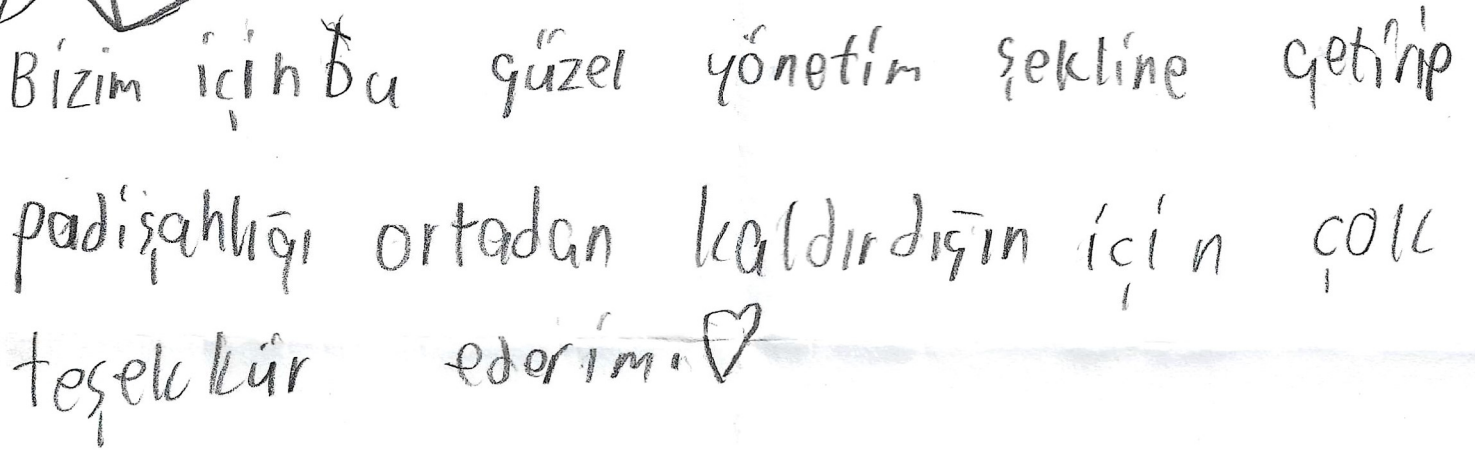 Bizim için bu güzel yönetim şekline getirip
padişahlığı ortadan kaldırdığın için çok
teşekkür ederim.♡